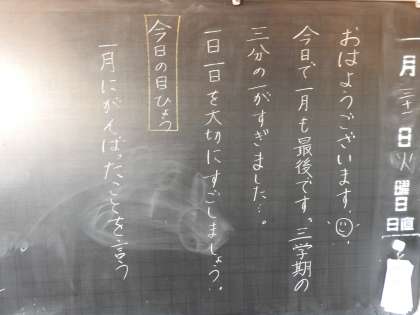 一月三十一日火曜日
日直
おはようございます。
今日で一月も最後です。三学期の
三分の一がすぎました…。
一日一日を大切にすごしましょう。
今日の目ひょう
一月にがんばったことを言う